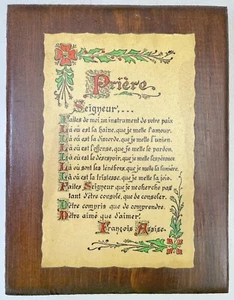 Prière
Seigneur,...
Faites de moi un instrument de votre paix
Là où est la haine, que je mette l'amour.
Là où est la discorde, que je mette l'union.
Là où est l'offense, que je mette le pardon.
Là où est le désespoir, que je mette l'espérance.
Là où sont les ténèbres, que je mette la lumière.
Là où est la tristesse, que je mette la joie.
Faites Seigneur que je ne cherche pas
tant d'être consolé, que de consoler.
D'être compris que de comprendre.
D'être aimé que d'aimer!
François Assise.